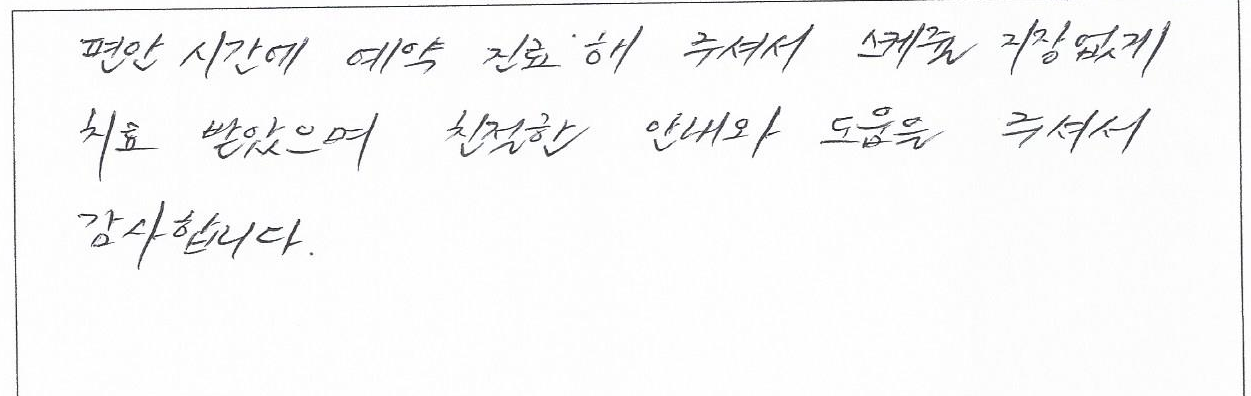 편안 시간에 예약 진료해 주셔서 스케쥴 지장없게
치료 받았으며 친절한 안내와 도움을 주셔서
감사합니다.